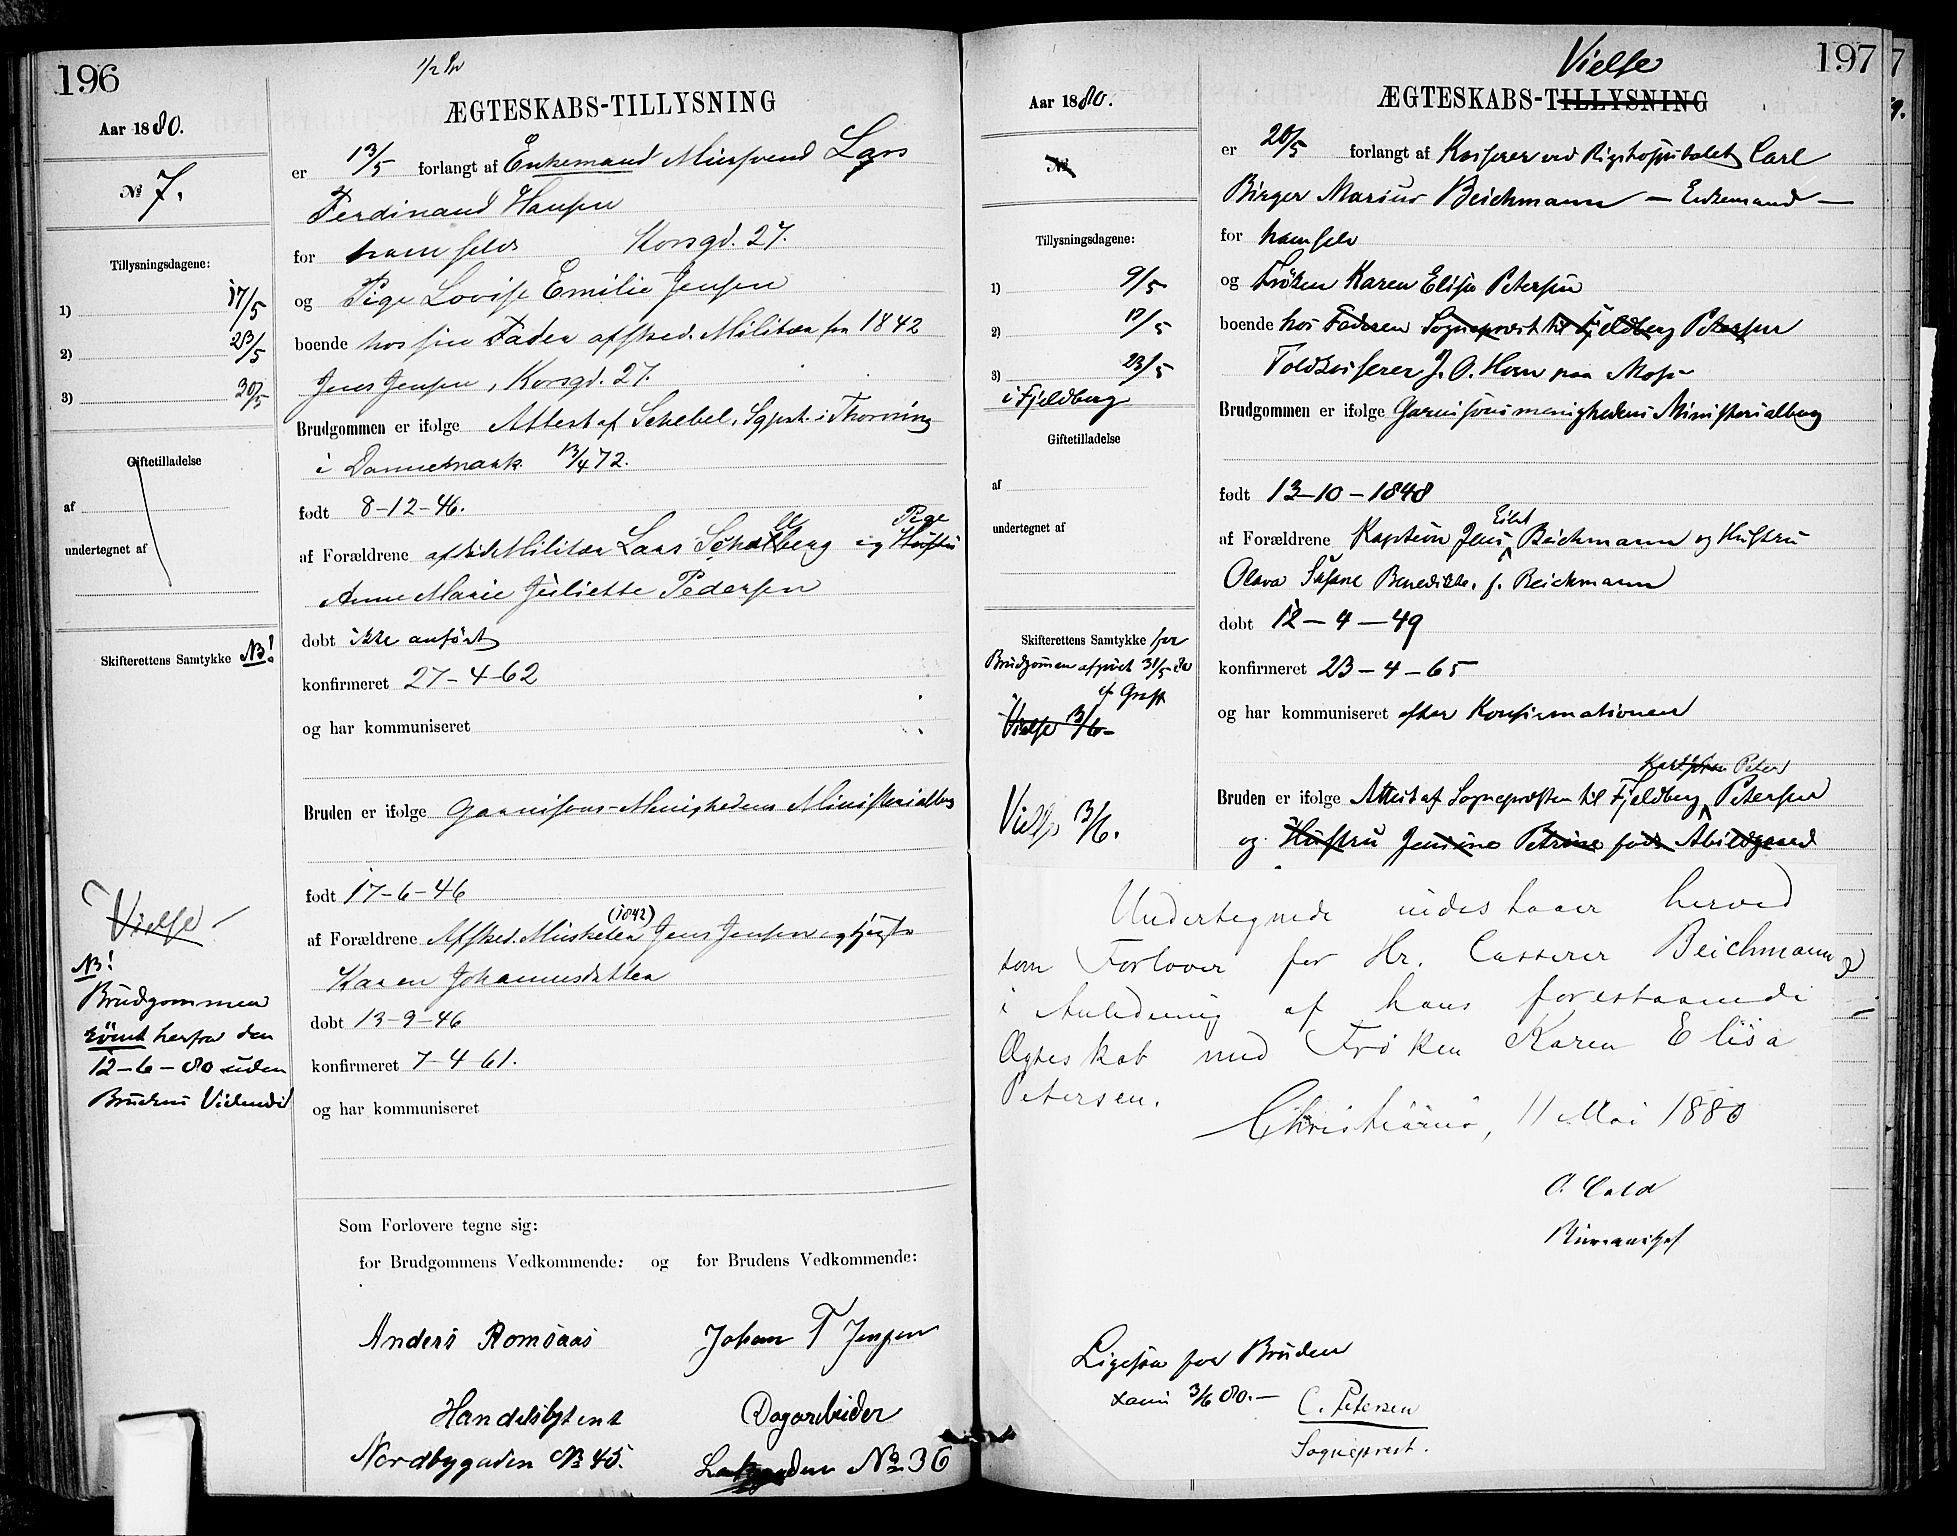 196
1/2
ÆGTESKABS-TILLYSNING
Aar 1880.
No 7.
Tillysningsdagene:
1) 17/5
2) 23/5
3) 30/5
Giftetilladelse
af
undertegnet af
Skifterettens Samtykke NB!
Vielse
NB!
Brudgommen
römt herfra den
12-6-80 uden
Brudens Vidende
er 13/5 forlangt af Enkemand Mursvend Lars
Ferdinand Hansen
for ham selv Korsgd. 27.
og Pige Lovise Emilie Jensen
boende hos sin Fader afsked. Militær fra 1842
Jens Jensen, Korsgd. 27.
Brudgommen er ifølge Attest af Schebel, Sgprst. i Thorning
i Dannemark 13/4 72.
født 8-12-46.
Pige
af Forældrene Militær Lars og Hustru
Anne Marie Juliette Pedersen
døbt ikke anført
konfirmeret 27-4-62
og har kommuniseret
Bruden er ifølge Garnisons-Menighedens Ministerialbog
født 17-6-46
(1842)
af Forældrene Afsked. Musketer Jens Jensen og
Karen Johannesdatter
døbt 13-9-46
konfirmeret 7-4-61.
og har kommuniseret
Som Forlovere tegne sig:
for Brudgommens Vedkommende: og for Brudens Vedkommende:
Anders Romsaas Johan T Jensen
Handelsbetjent Dagarbeider
Nordbygaden No 45. No 36
197
Vielse
ÆGTESKABS-TILLYSNING
Aar 1880.
No
Tillysningsdagene:
1) 9/5
2) 17/5
3) 23/5
i Fjeldberg
Giftetilladelse
af
undertegnet af
Skifterettens Samtykke for
Brudgommen afgivet 31/5 80
Vielse 3/6
Vielse 3/6.
er 20/5 forlangt af Kasserer ved Rigshospitalet Carl
Birger Marius Beichmann — Enkemand —
for ham selv
og Frøken Karen Elisa Petersen
boende hos Faderen Sogneprest til Fjeldberg Petersen
Toldkasserer J. O. Horn paa Moss
Brudgommen er ifølge Garnisonsmenighedens Ministerialbog
født 13-10-1848
af Forældrene Kaptein Jens Beichmann og Hustru
Olava Susane Benedikte, f. Beichmann
døbt 12-4-49
konfirmeret 23-4-65
og har kommuniseret efter Konfirmationen
Peter
Bruden er ifølge Attest af Sognepresten til Fjeldberg Petersen
og Hustru Jensine Petrine født Abildgaard
Undertegnede indestaaer herved
som Forlover for Hr. Casserer Beichmann
i Anledning af hans forestaaende
Ægteskab med Frøken Karen Elisa
Petersen.
Christiania, 11 Mai 1880
O. Cold
Bureauchef
Ligesaa for Bruden
3/6 80.— C. Petersen
Sogneprest.